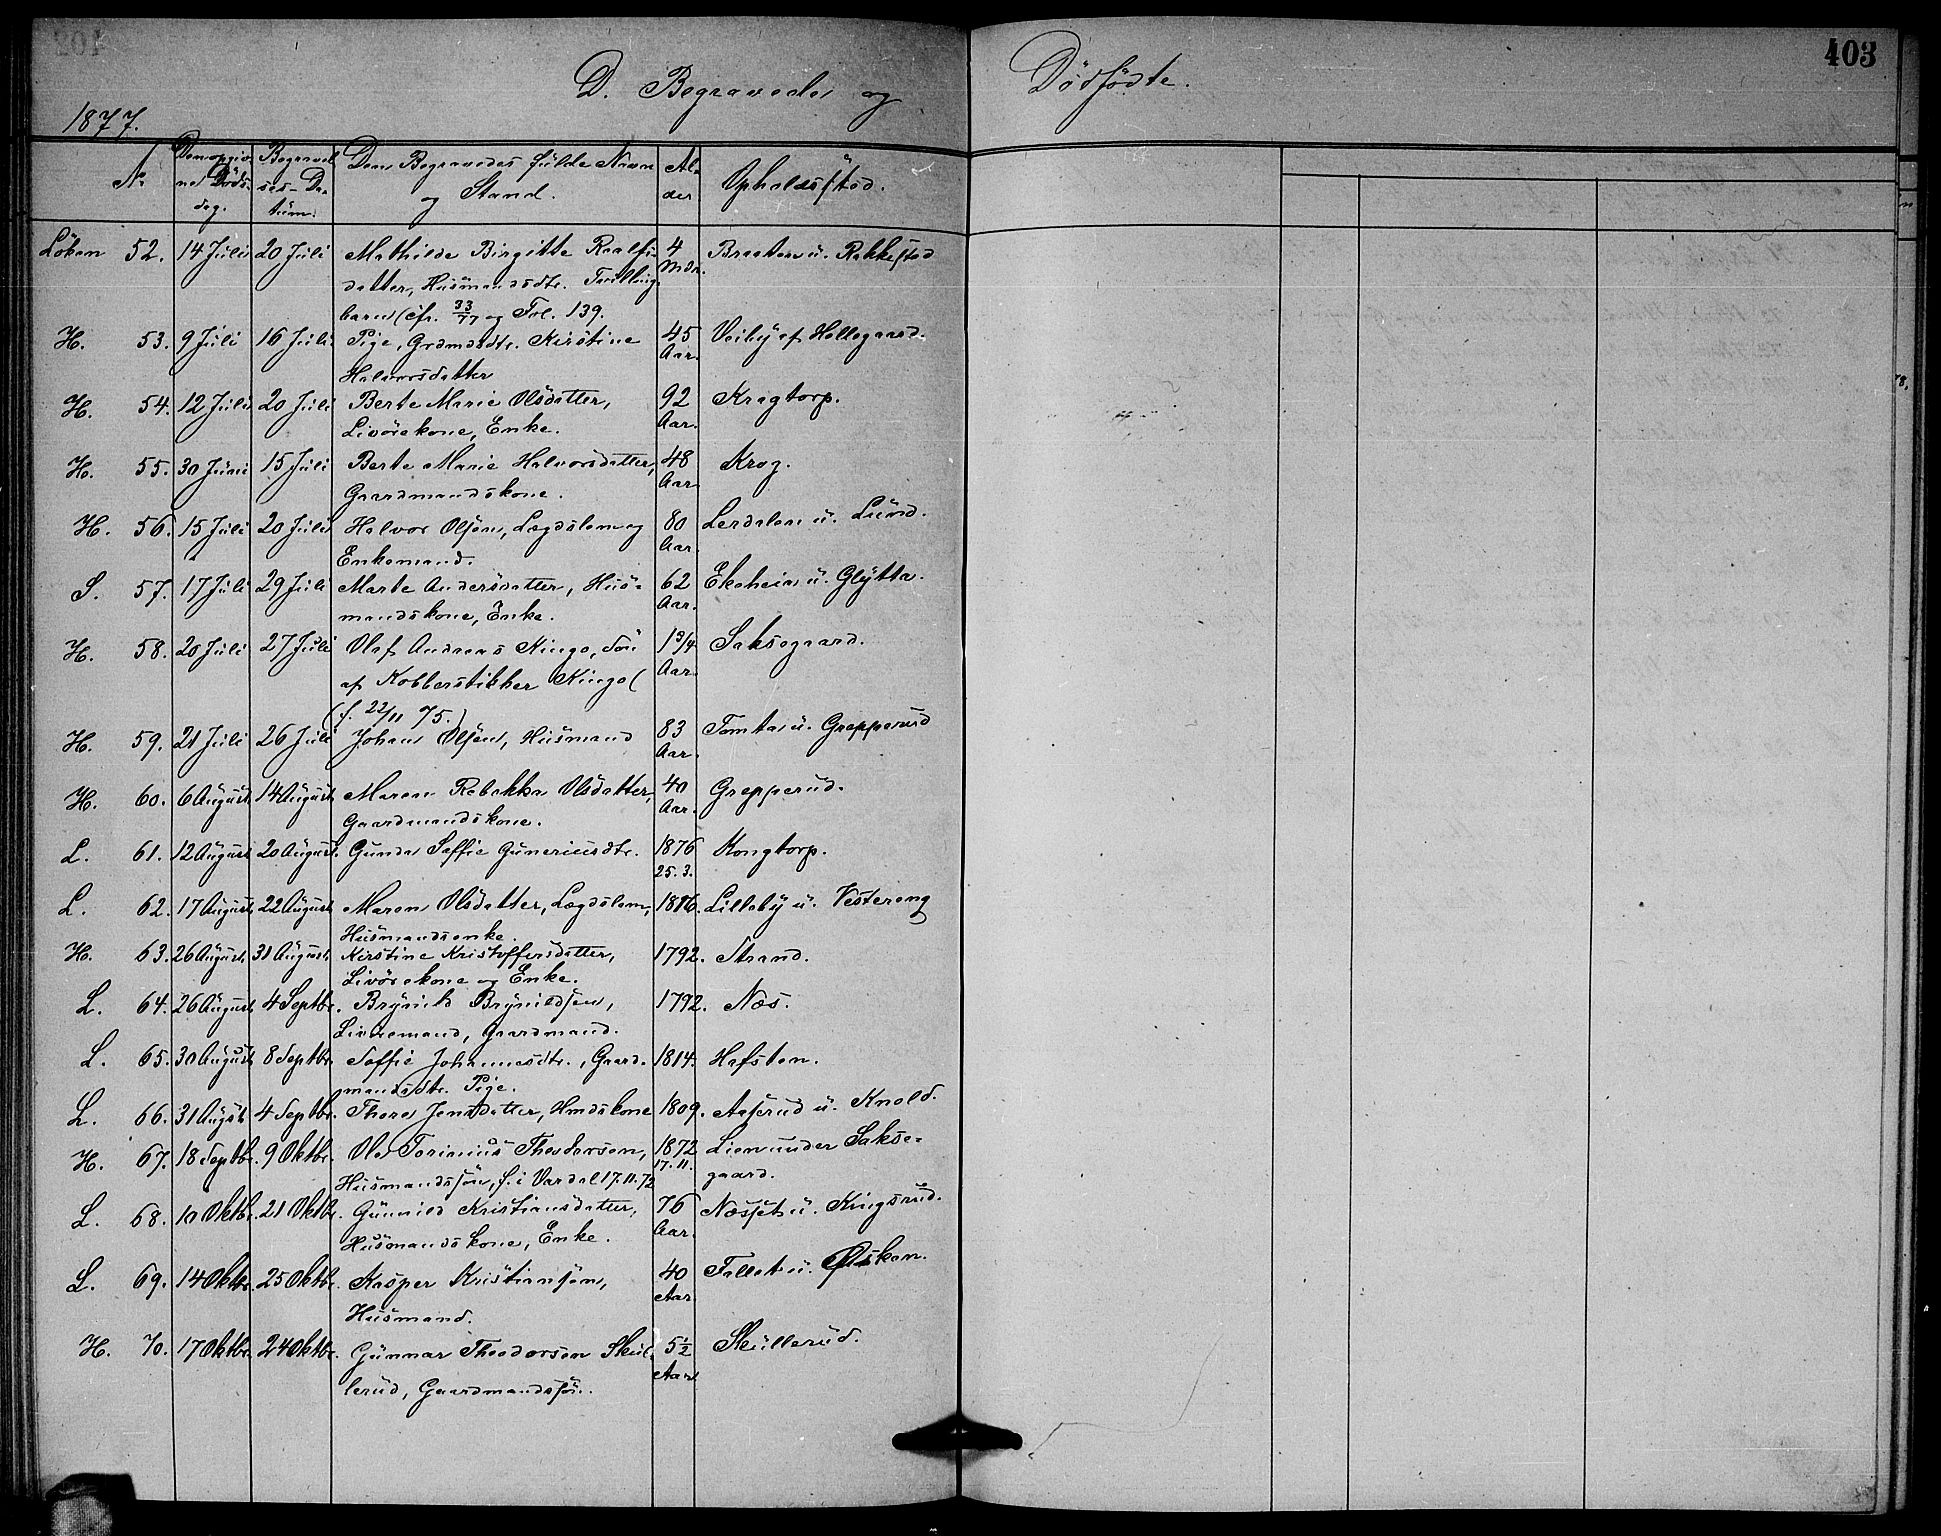 403
D. Begravede og Dödfödte.
1877.
No
Den opgivne Döds-dag.
Begravel-ses-Da-tum.
Den Begravedes fulde Navn og Stand.
Al-der
Opholdssted.
Löken 52. 14 Juli 20 Juli Mathilde Birgitte 4 Mdr. Braaten u. Rakkestad
datter, Husmandsdtr. Tvilling-
barn (cfr. 33/77 og Fol. 139.
H. 53. 9 Juli 16 Juli Pige, Grdmdsdtr. Kirstine 45 Aar. Veiby af Hellegaard.
Halvorsdatter
H. 54. 12 Juli 20 Juli Berte Marie Olsdatter, 92 Aar. Kragtorp.
Livörekone, Enke.
H. 55. 30 Juni 15 Juli Berte Marie Halvorsdatter, 48 Aar. Krog.
Gaardmandskone.
H. 56. 15 Juli 20 Juli Halvor Olsen, Lægdslem og 80 Aar. Lerdalen u. Lund.
Enkemand.
S. 57. 17 Juli 29 Juli Marte Andersdatter, Hus- 62 Aar. Ekeheien u. Glytta.
mandskone, Enke.
H. 58. 20 Juli 27 Juli Olaf Andreas Kingo, Sön 1 3/4 Aar. Saksegaard.
af Kobberstikker Kingo (
(f. 22/11 75.)
H. 59. 21 Juli 26 Juli Johan Olsen, Husmand 83 Aar. Tomta u. Grepperud
H. 60. 6 August 14 August Maren Rebekka Olsdatter, 40 Aar. Grepperud.
Gaardmandskone.
L. 61. 12 August 20 August. Gunda Soffie Guneriusdtr. 1876 25.3. Kongtorp.
L. 62. 17 August 22 August Maren Olsdatter, Lægdslem, 1816. Lilleby u. Vestereng
Husmandsenke.
H. 63. 26 August. 31 August. Kirstine Kristoffersdatter, 1792. Strand.
Livörekone og Enke.
L. 64. 26 August 4 Septbr. Brynild Brynildsen, 1792. Næs.
Livöremand, Gaardmand.
L. 65. 30 August 8 Septbr. Soffie Johannesdtr., Gaard- 1814. Hafsten.
mandsdtr. Pige.
L. 66. 31 Augst. 4 Septbr. Thora Jensdatter, Hmdskone 1809. Aaserud u. Knold.
H. 67. 18 Septbr. 9 Oktbr. Ole Torinius Theodorsen, 1872 17.11. Lien under Sakse-
Husmandssön, f. i Vardal 17.11.72 gaard.
L. 68. 10 Oktbr. 21 Oktbr. Gunnild Kristiansdatter, 76 Aar. Næsset u. Kingsrud.
Husmandskone, Enke.
L. 69. 14 Oktbr. 25 Oktbr. Kasper Kristiansen, 40 Aar. Fallet u.
Husmand.
H. 70. 17 Oktbr. 24 Oktbr. Gunnar Theodorsen Skul- 5 1/2 Aar Skullerud.
lerud, Gaardmandssön.